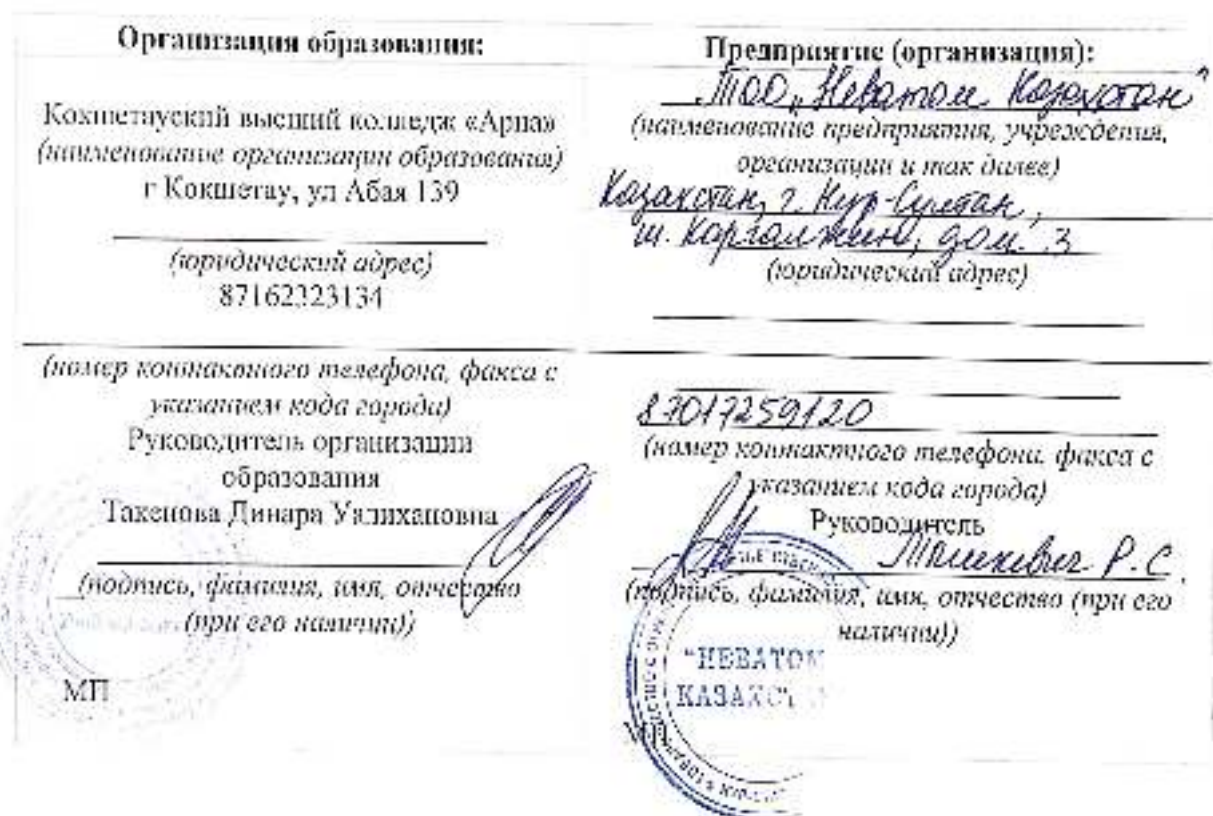 Организация образования:
Кокшетауский высший колледж «Арна»
(наименование организации образования)
г Кокшетау, ул Абая 139
(юридический адрес)
87162323134
(номер контактного телефона, факса с
указанием кода города)
Руководитель организации
образования
Такенова Динара Уалихановна
(подпись, фамилия, имя, отчество
(при его наличии))
МП
Предприятие (организация):
ТОО „Неватом Казахстан"
(наименование предприятия, учреждения,
организации и так далее)
Казахстан, г. Нур-Султан,
ш. Коргалжин, дом. 3
(юридический адрес)
87017259120
(номер контактного телефона, факса с
указанием кода города)
Руководитель
Р.С.
(подпись, фамилия, имя, отчество (при его
наличии))
"НЕВАТОМ
КАЗАХСТ